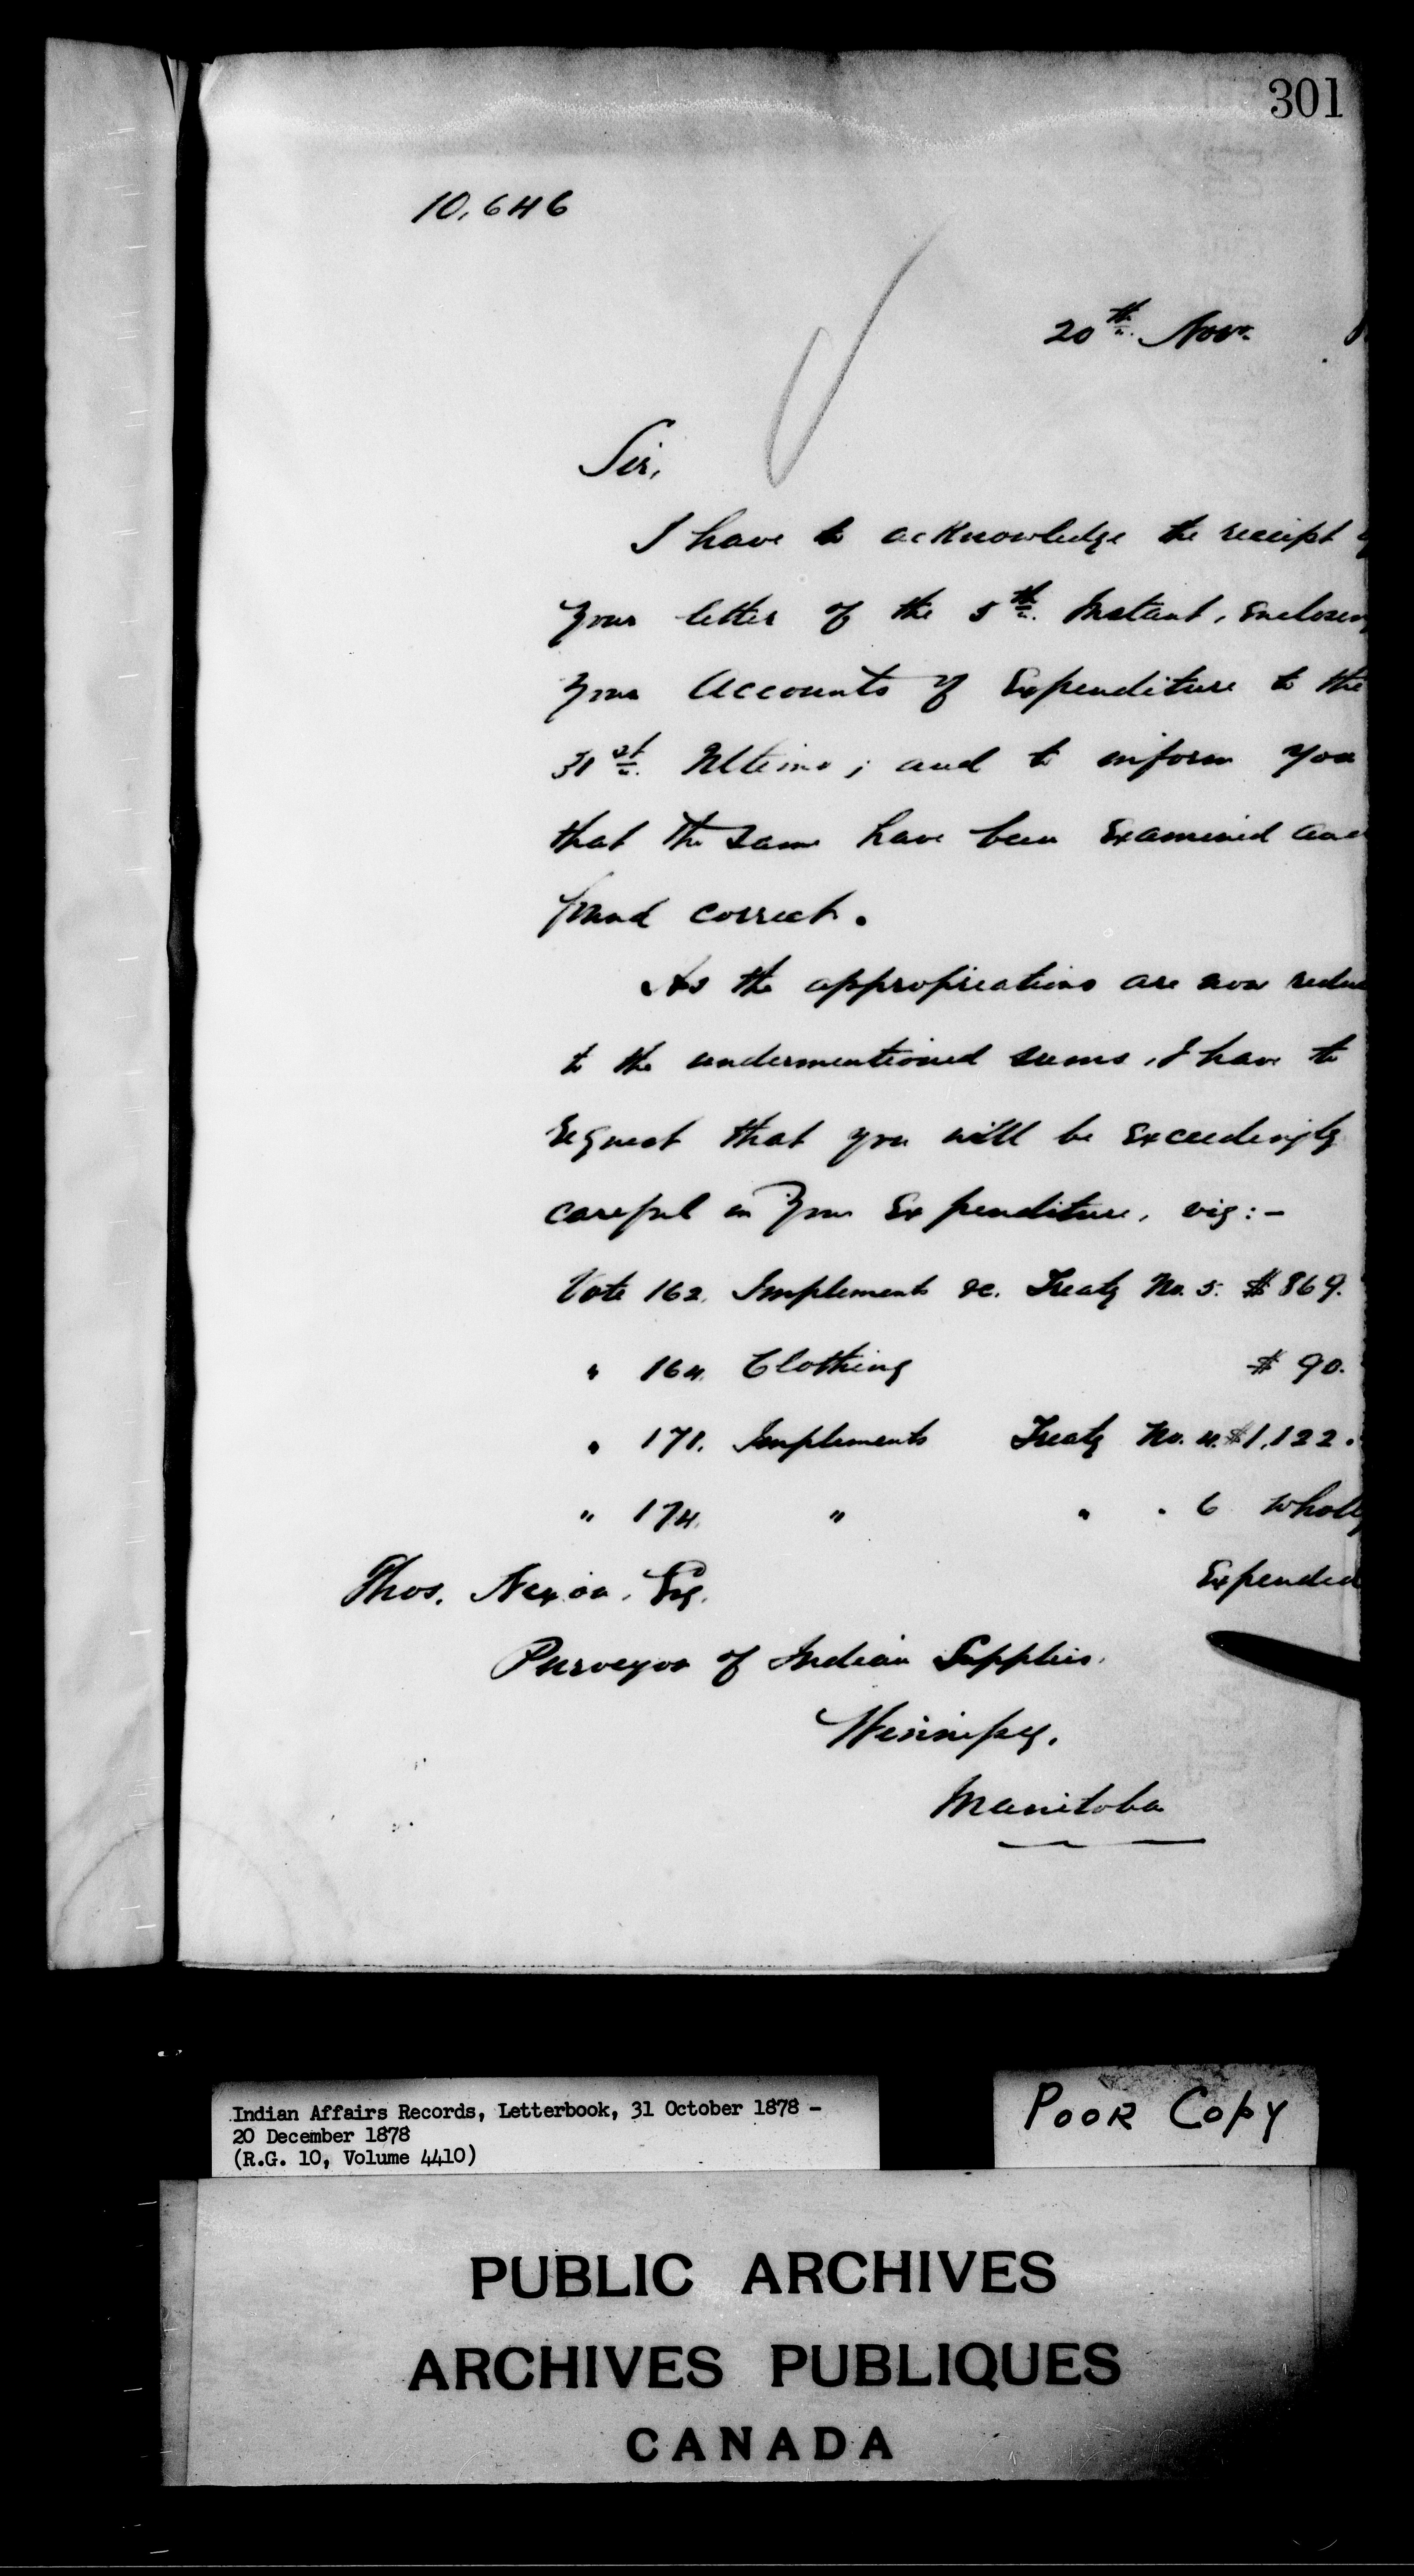 301
10,646
20th. Nov.
Sir,
I have to acknowledge the receipt
your letter of the 5th. Instant, Enclosin
your Accounts of Expenditure to the
31st. Ultimo; and to inform you
that the same have been Examined and
found correct.
As the appropriations are now reduc
to the undermentioned sums, I have to
request that you will be Exceedingly
careful in your Expenditure, viz:-
Vote 162. Implements &c. Treaty No. 5. $869.
" 164. Clothing $ 90.
" 171. Implements Treaty No. 4. $1,122.
" 174. " " " 6 wholly
Expended
Thos. Nixon, Esq.
Purveyor of Indian Supplies.
Winnipeg.
Manitoba
Indian Affairs Records, Letterbook, 31 October 1878 -
20 December 1878
(R.G. 10, Volume 4410)
POOR COPY
PUBLIC ARCHIVES
ARCHIVES PUBLIQUES
CANADA